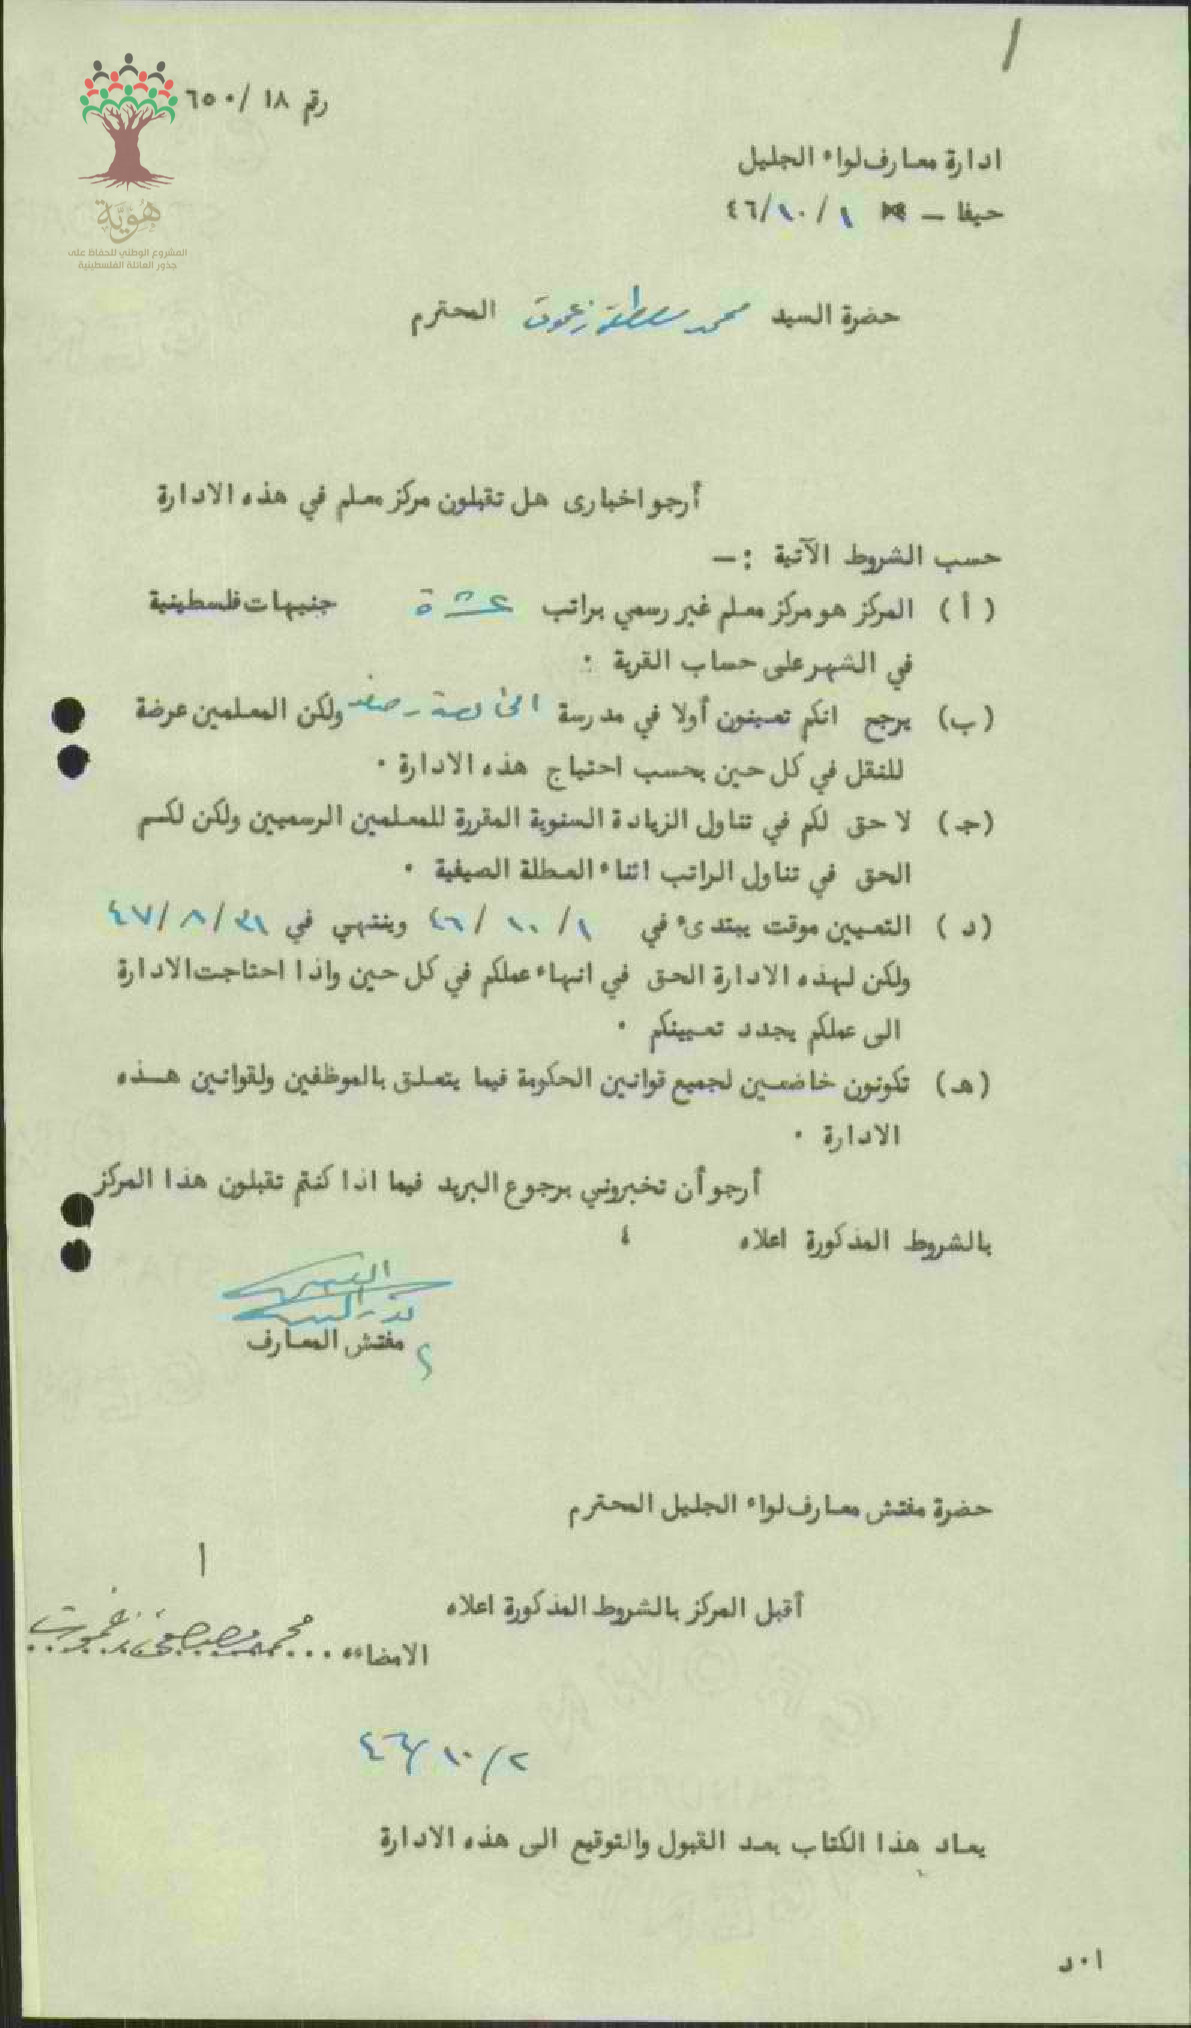 رقم ١٨ /٦٥٠
هُويَّة
المشروع الوطني للحفاظ على
جذور العائلة الفلسطينية
ادارة معارف لواء الجليل
حيفا – ٤٦/١٠/١
حضرة السيد محمد مصطفى زغموت المحترم
أرجو اخبارى هل تقبلون مركز معلم في هذه الادارة
حسب الشروط الآتية :–
(أ) المركز هو مركز معلم غير رسمي براتب عشرة جنيهات فلسطينية
في الشهر على حساب القرية .
(ب) يرجح انكم تعينون أولا في مدرسة الخالصة - صفد ولكن المعلمين عرضة
للنقل في كل حين بحسب احتياج هذه الادارة .
(جـ) لا حق لكم في تناول الزيادة السنوية المقررة للمعلمين الرسميين ولكن لكم
الحق في تناول الراتب اثناء العطلة الصيفية .
(د) التعيين موقت يبتدىء في ٤٦/١٠/١ وينتهي في ٤٧/٨/٣١
ولكن لهذه الادارة الحق في انهاء عملكم في كل حين واذا احتاجت الادارة
الى عملكم يجدد تعيينكم .
(هـ) تكونون خاضعين لجميع قوانين الحكومة فيما يتعلق بالموظفين ولقوانين هذه
الادارة .
أرجو أن تخبروني برجوع البريد فيما اذا كنتم تقبلون هذا المركز
بالشروط المذكورة اعلاه
مفتش المعارف
حضرة مفتش معارف لواء الجليل المحترم
أقبل المركز بالشروط المذكورة اعلاه
الامضاء ... محمد مصطفى زغموت
٤٦/١٠/٢
يعاد هذا الكتاب بعد القبول والتوقيع الى هذه الادارة
ا٠د